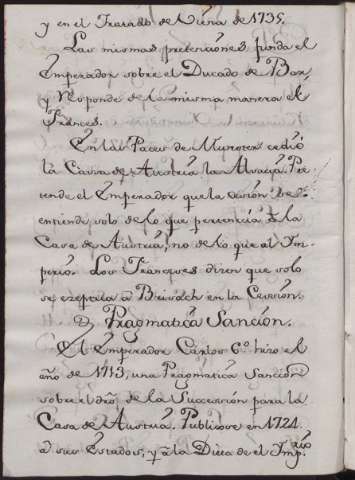 y en el Tratado de Viena de 1735.
Las mismas pretenciones funda el
Emperador sobre el Ducado de Bar,
y Responde de la misma manera el
Frances.
En las Paces de Munster cedió
la Casa de Austria la Alsacia. Pre-
tende el Emperador que la cesion se
entiende solo de lo que pertenecia à la
Casa de Austria, no de lo que al Im-
perio. Los Franceses dizen que solo
se exeptúa à Brisach en la Cession.
Pragmatica Sancion.
El Emperador Carlos 6.º hizo el
año de 1713, una Pragmatica Sancion
sobre el dro. de la Succession para la
Casa de Austria. Publicose en 1724.
à sus Estados, y à la Dieta de el Imp.rio